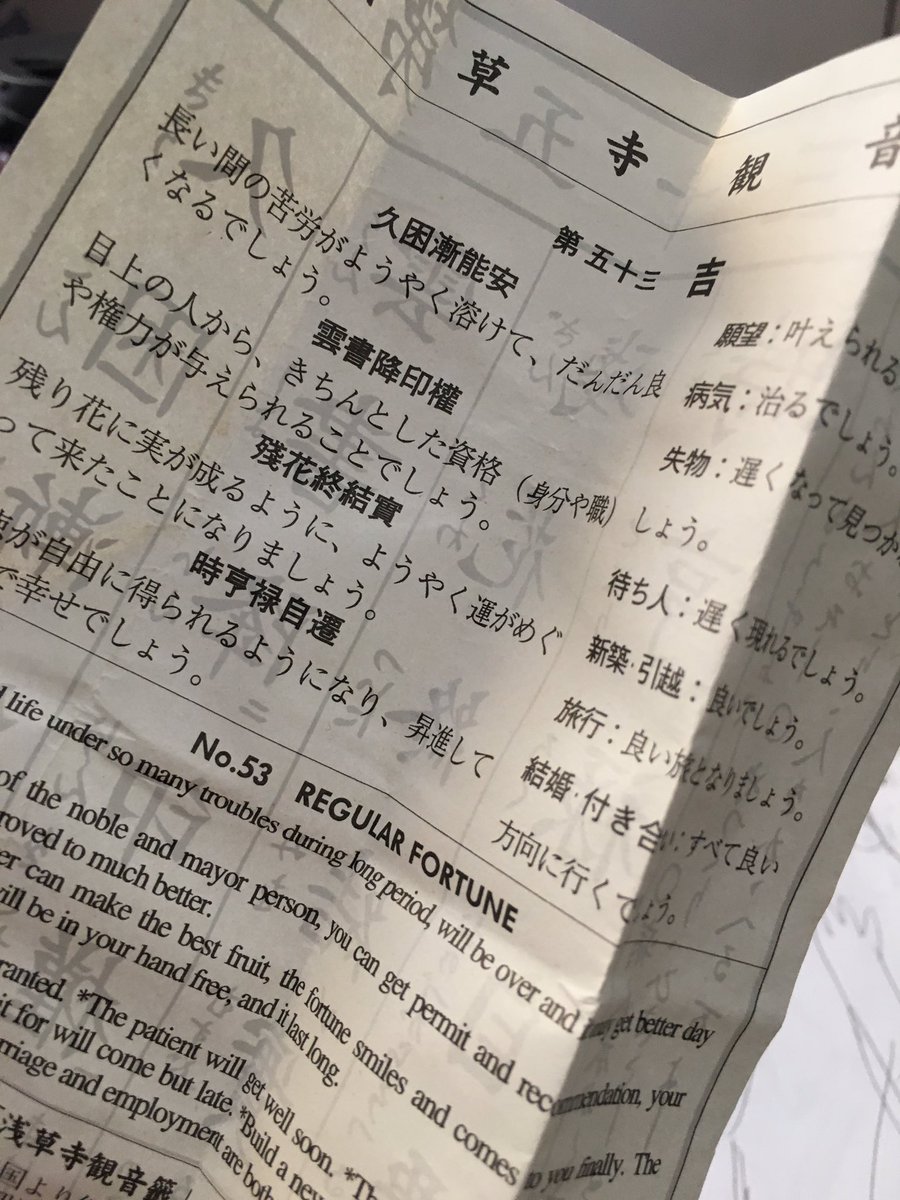 草寺観音
第五十三 吉
久困漸能安
長い間の苦労がようやく溶けて、だんだん良
くなるでしょう。
雲書降印權
目上の人から、きちんとした資格（身分や職）
や権力が与えられることでしょう。
残花終結實
残り花に実が成るように、ようやく運がめぐ
って来たことになりましょう。
時亨禄自遷
が自由に得られるようになり、昇進して
で幸せでしょう。
願望：叶えられる
病気：治るでしょう。
失物：遅くなって見つか
しょう。
待ち人：遅く現れるでしょう。
新築・引越：良いでしょう。
旅行：良い旅となりましょう。
結婚・付き合い：すべて良い
方向に行くでしょう。
No.53 REGULAR FORTUNE
life under so many troubles during long period, will be over and it may get better day
of the noble and mayor person, you can get permit and recommendation, your
roved to much better.
er can make the best fruit, the fortune smiles and comes to you finally. The
ill be in your hand free, and it last long.
ranted. *The patient will get well soon. *Th
it for will come but late. *Build a new
rriage and employment are both
浅草寺観音籤
国より